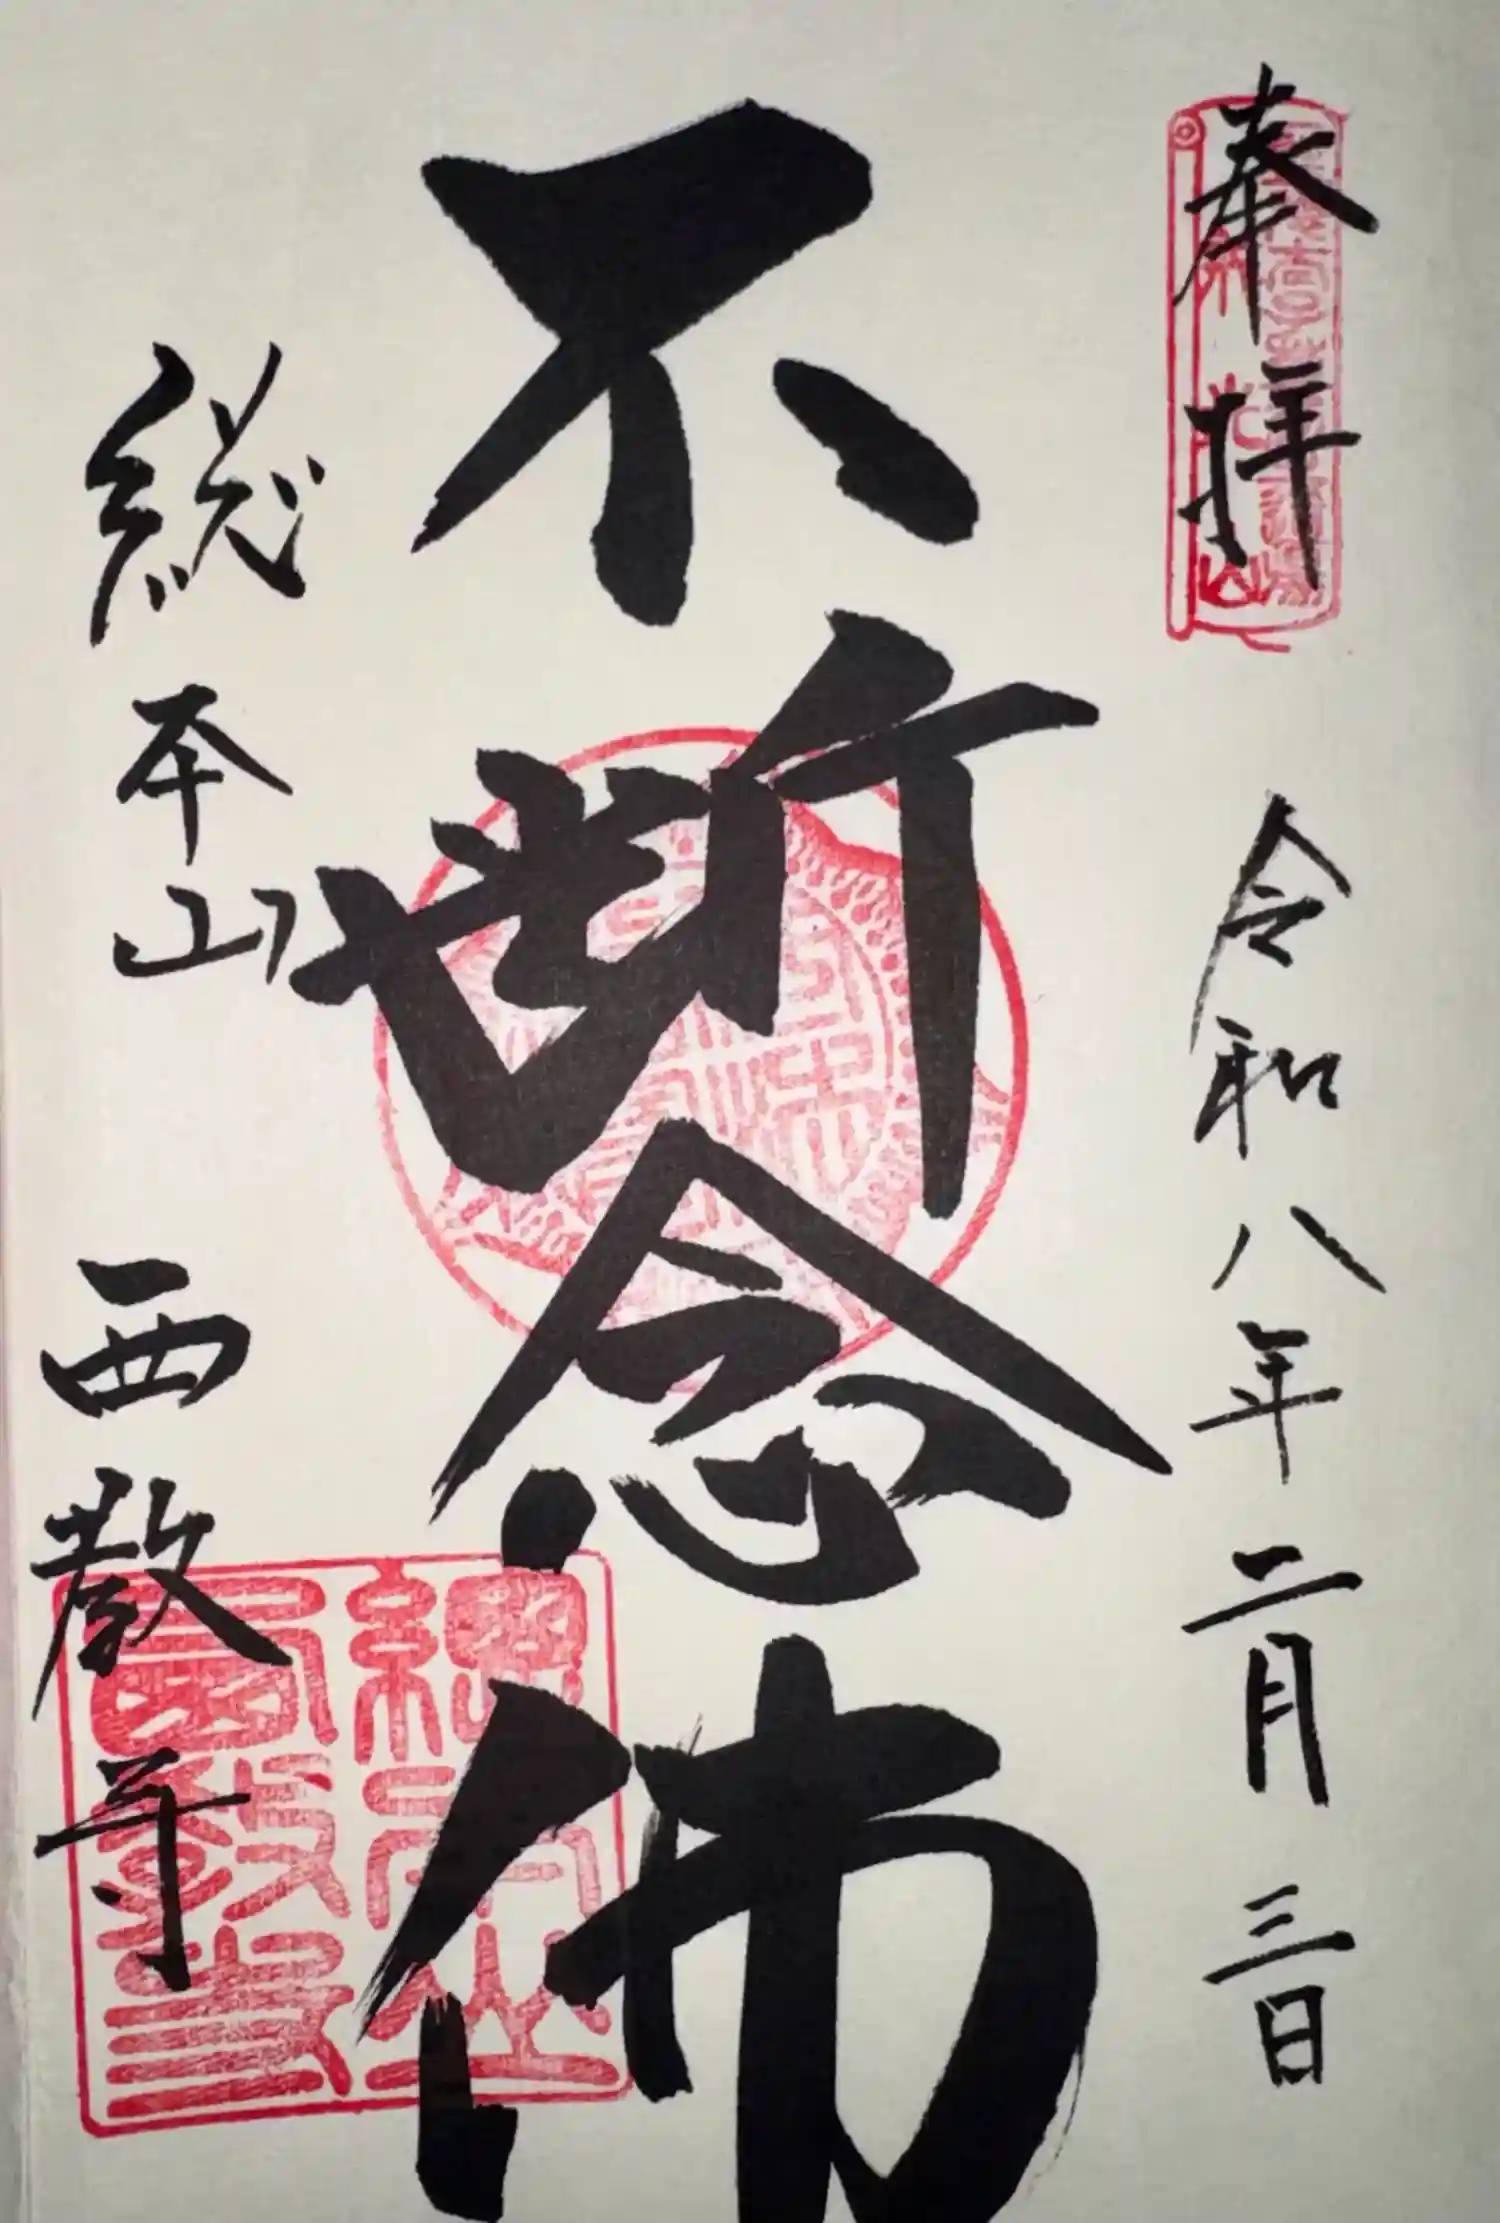 奉拝
令和八年二月三日
不断念佛
総本山
西教寺
總本山
西教寺